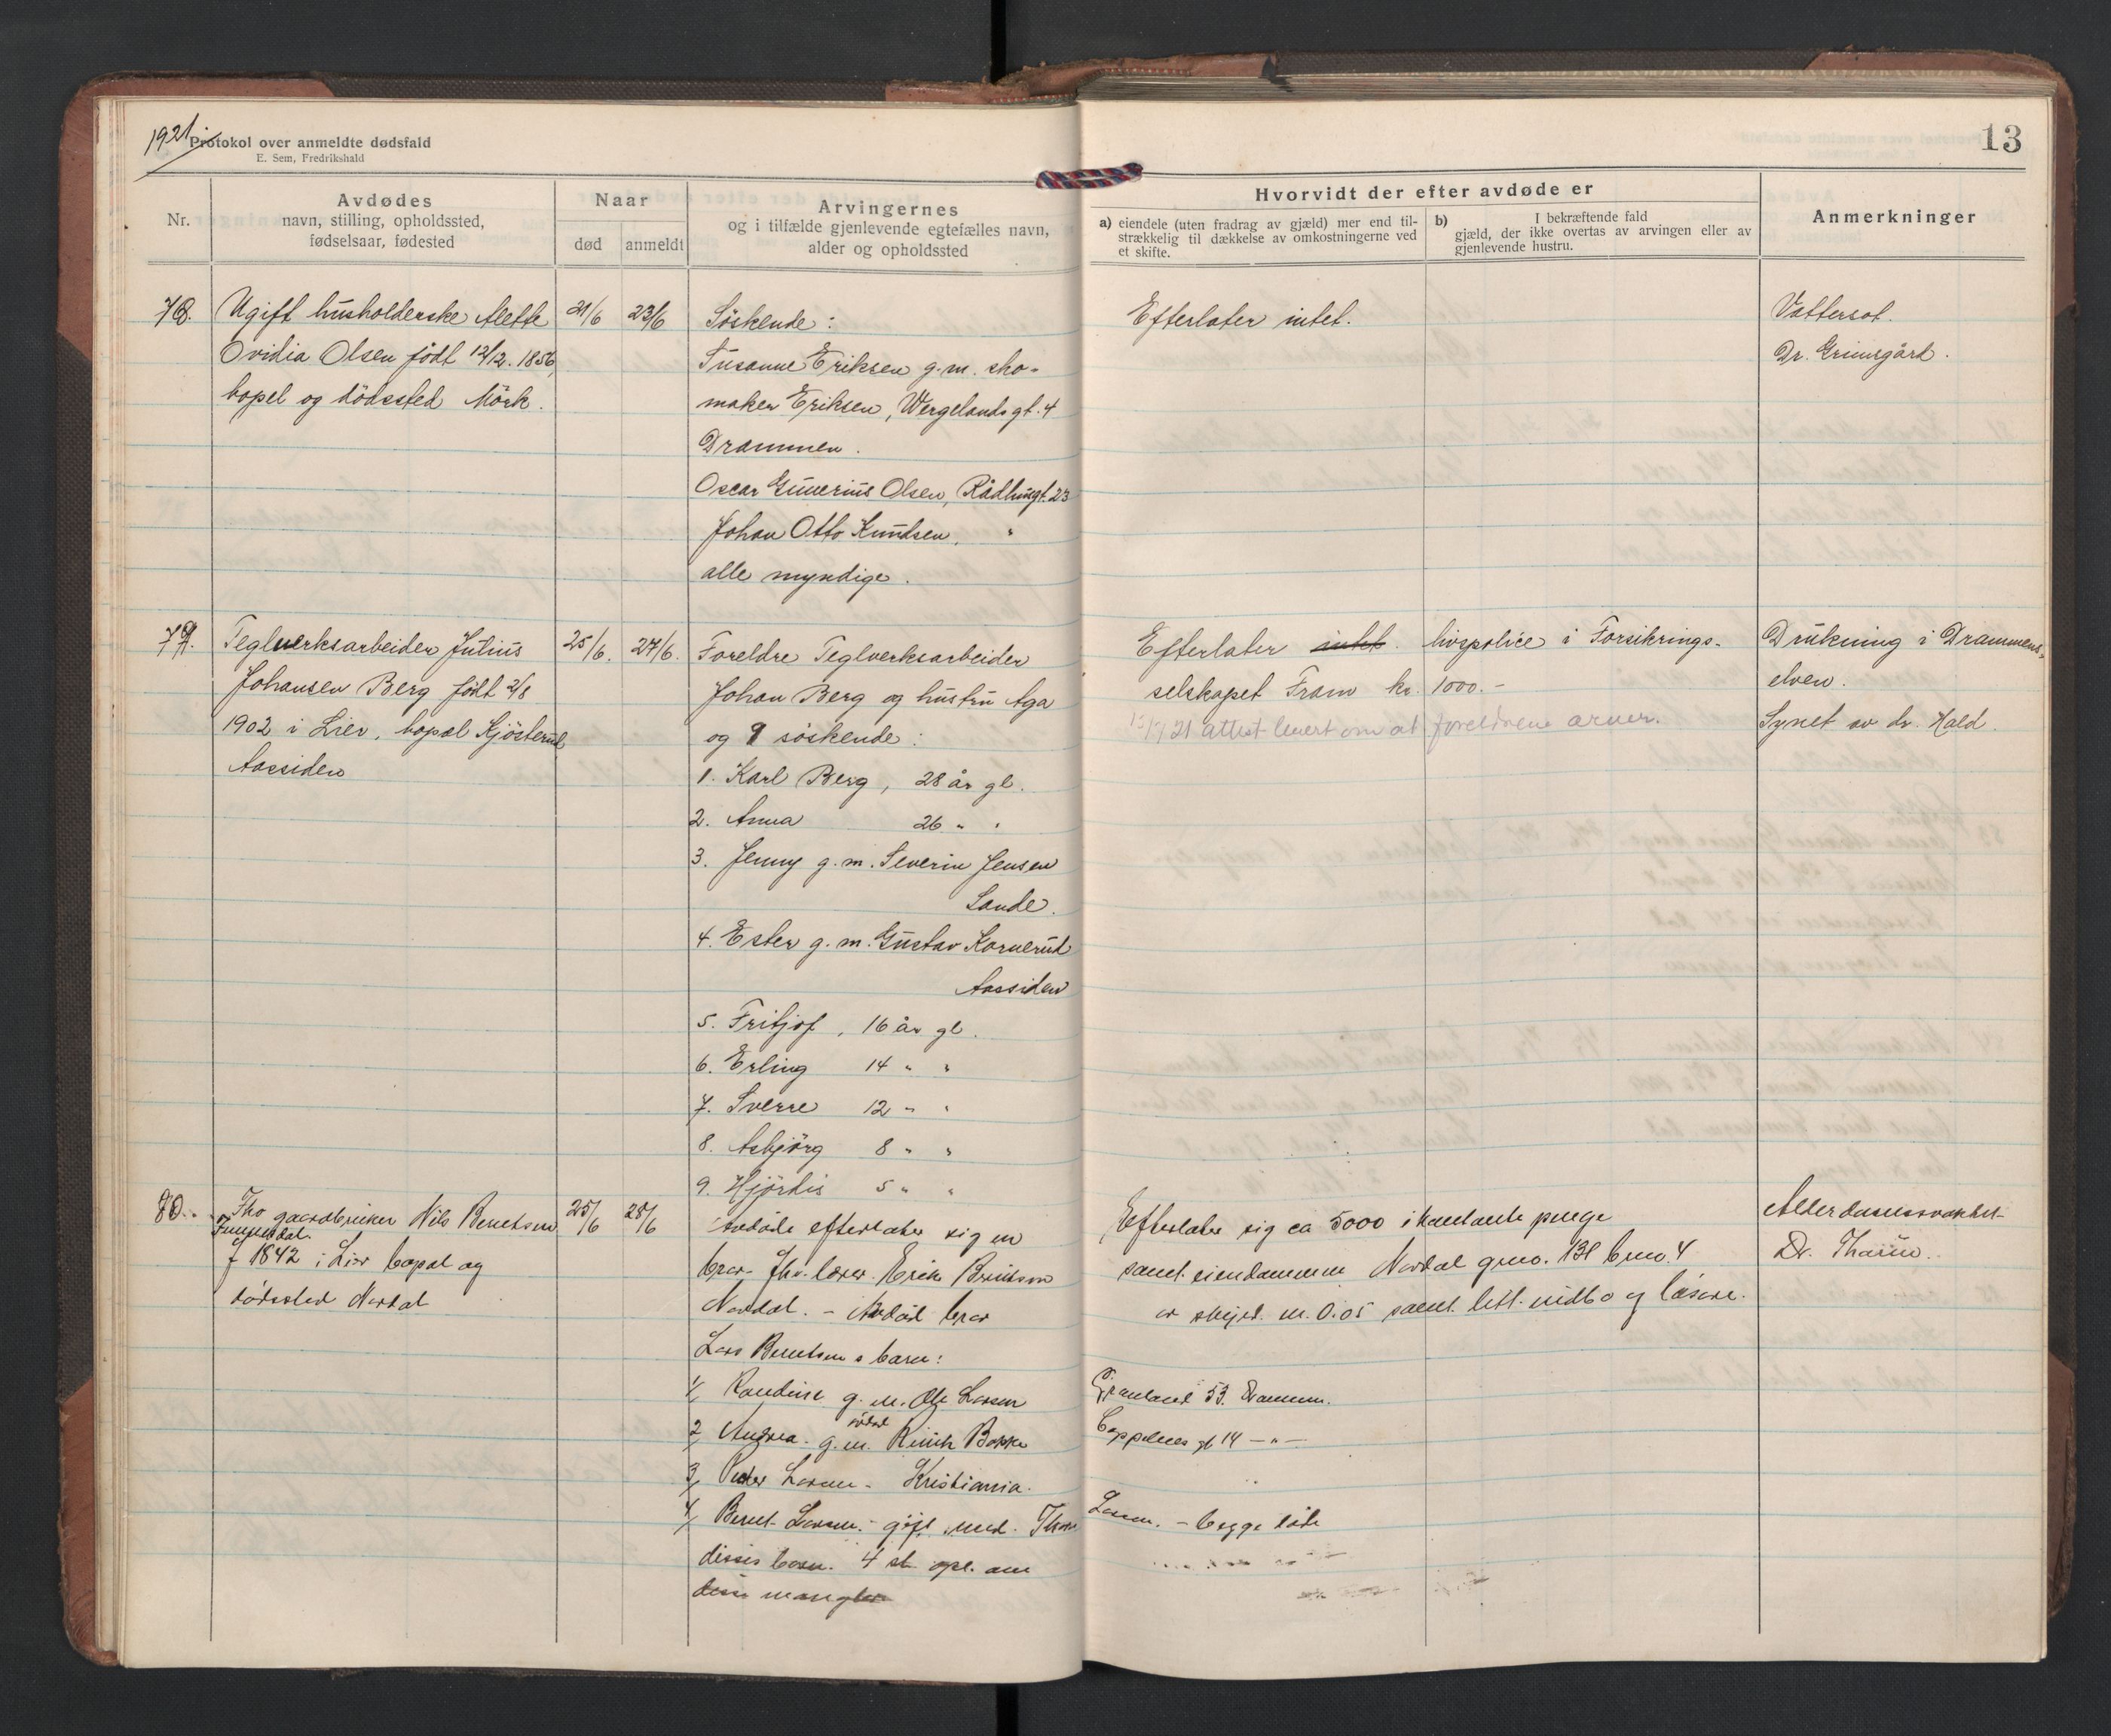 1921
Protokol over anmeldte dødsfald
E. Sem, Fredrikshald
13
Nr.
Avdødes
navn, stilling, opholdssted,
fødselsaar, fødested
Naar
død
anmeldt
Arvingernes
og i tilfælde gjenlevende egtefælles navn,
alder og opholdssted
Hvorvidt der efter avdøde er
a) eiendele (uten fradrag av gjæld) mer end til-
strækkelig til dækkelse av omkostningerne ved
et skifte.
b) I bekræftende fald
gjæld, der ikke overtas av arvingen eller av
gjenlevende hustru.
Anmerkninger
78.
Ugift husholderske Alette
Ovidia Olsen født 12/12. 1856,
bopel og dödssted Mörk.
21/6
23/6
Söskende:
Susanne Eriksen g.m. sko-
maker Eriksen, Wergelandsgt. 4
Drammen.
Oscar Gunerius Olsen, Rådhusgt. 23
Johan Otto Knudsen, "
alle myndige.
Efterlater intet.
Vattersot.
Dr. Grimsgård.
79.
Teglverksarbeider Julius
Johansen Berg födt 2/8
1902 i Lier, bopæl Kjösterud
Aassiden
25/6.
27/6.
Foreldre Teglverksarbeider
Johan Berg og hustru Aga
og 9 söskende:
1. Karl Berg, 28 år gl.
2. Anna 26 " "
3. Jenny g.m. Severin Jensen
Sande.
4. Ester g.m. Gustav Kornerud
Aassiden
5. Fritjof, 16 år gl.
6. Erling 14 " "
7. Sverre 12 " "
8. Asbjörg 8 " "
9. Hjördis 5 " "
Efterlater intet. livspolice i Forsikrings-
selskapet Fram kr. 1000.-
/7 21 attest levert om at foreldrene arver.
Drukning i Drammens-
elven.
Synet av dr. Hald.
80.
Fho gaardbruker Nils Berntsen
f 1842 i Lier bopæl og
dödssted Nordal
25/6
28/6
Avdöde efterlater sig en
bror fhv. lærer Erik Berntsen
Nordal. - Avdöd bror
Lars Berntsens barn:
1/ Randine g.m. Ole Larsen
Grönland 53. Drammen.
2/ Andrea g.m. Rinck Bakke
Cappelens gt 14 - " -
3/ Peder Larsen - Kristiania.
4/ Bernt Larsen - gift med Thora
Larsen. - begge döde
disses barn. 4 st opl. om
disse mangler
Efterlater sig ca 5000 i kontante penge
samt eiendommen Nordal gno. 131 bno. 4
av skyld m. 0.05 samt litt indbo og lösöre.
Alderdomssvakhet
Dr. Thaüu.